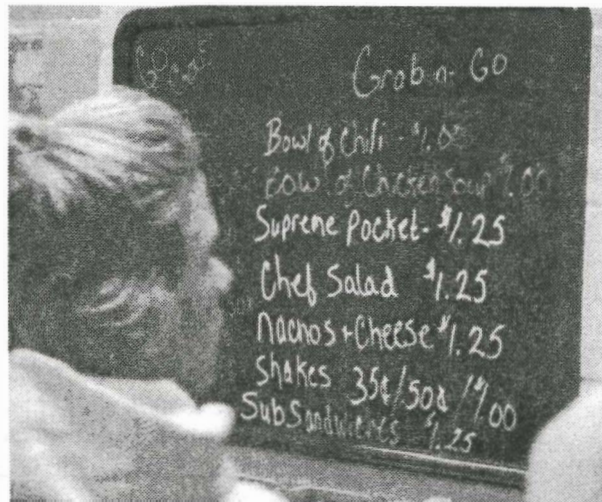 Grab n- GO
Bowl of Chili - $1.00
Bowl of Chicken Soup $1.00
Supreme Pocket- $1.25
Chef Salad $1.25
Nachos + Cheese $1.25
Shakes 35¢/50¢/$1.00
Sub Sandwiches $1.25